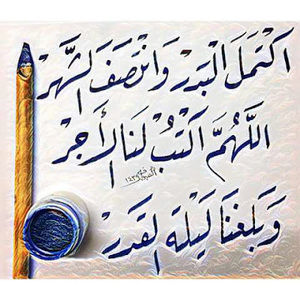 اكْتَمَلَ الْبَدْرُ وَانْتَصَفَ الشَّهْرُ
اللَّهُمَّ اكْتُبْ لَنَا الْأَجْرَ
وَبَلِّغْنَا لَيْلَةَ الْقَدْرِ